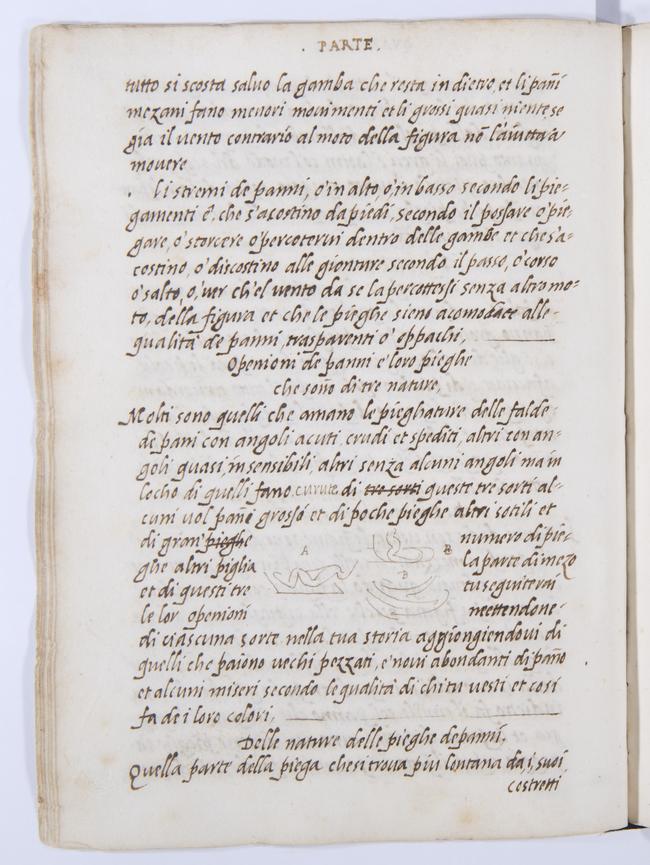 . PARTE.
tutto si scosta salvo la gamba che resta in dietro, et li pañi
mezani fano menori movimenti et li grossi quasi niente se
gia il vento contrario al moto della figura nõ l'aiutta à
movere
. li stremi de panni, o'in alto o'in basso secondo li pie-
gamenti è, che s'acostino da piedi, secondo il possare o'pie-
gare, o'storcere o'percotervi dentro delle gambe et che s'a-
costino, o'discostino alle gionture secondo il passo, o'corso
o'salto, o'ver ch'el vento da se la percottessi senza altro mo-
to, della figura et che le pieghe sieno acomodate alle-
qualità de panni, trasparenti o' oppachi,
Openioni de panni e loro pieghe
che soño di tre nature,
Molti sono quelli che amano le pieghature delle falde-
de pani con angoli acuti crudi et spediti, altri con an-
goli quasi, insensibili, altri senza alcuni angoli ma in
lecho di quelli fano curute di tre sorti queste tre sorti al-
cuni vol pañi grossi et di poche pieghe altri sotili et
di gran pieghe numero di pie-
A B
ghe altri piglia la parte di mezo
B
et di questi tre tu seguiterai
le lor openioni mettendone-
di ciascuna sorte nella tua storia aggiongiendovi di
quelli che paiono vechi pezzati, e novi abondanti di paño
et alcuni miseri secondo le qualità di chi tu vesti et cosi
fa de i loro colori,
Delle nature delle pieghe de panni.
Quella parte della piega che si trova piu lontana da, i, suoi
costretti